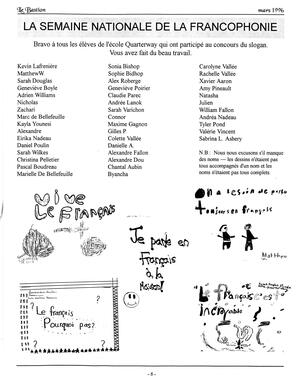 Le Bastion
mars 1996
LA SEMAINE NATIONALE DE LA FRANCOPHONIE
Bravo à tous les élèves de l'école Quarterway qui ont participé au concours du slogan.
Vous avez fait du beau travail.
Kevin Lafrenière
MatthewW
Sarah Douglas
Geneviève Boyle
Adrien Williams
Nicholas
Zachari
Marc de Bellefeuille
Kayla Younesi
Alexandre
Eirika Nadeau
Daniel Poulin
Sarah Wilkes
Christina Pelletier
Pascal Boudreau
Marielle De Bellefeuille
Sonia Bishop
Sophie Bidhop
Alex Roberge
Geneviève Parker
Claudie Parec
Andrée Lanok
Sarah Varichon
Connor
Maxime Gagnon
Gilles P
Colette Vallée
Danielle A.
Alexandre Fallon
Alexandre Dou
Chantal Aubin
Byancha
Carolyne Vallée
Rachelle Vallée
Xavier Aaron
Amy Pineault
Natasha
Julien
William Fallon
Andréa Nadeau
Tyler Poulin
Valérie Vincent
Sabrina L. Asbery
N.B : Nous nous excusons s'il manque
des noms — les dessins n'étaient pas
tous accompagnés d'un nom et les
noms n'étaient pas tous complets.
Vive
Le Français
On a besoin de
toujours français
Je parle en
Français
à la
maison!
Matthew
Le français
Pourquoi pas?
Le français est
incroyable
- 8 -